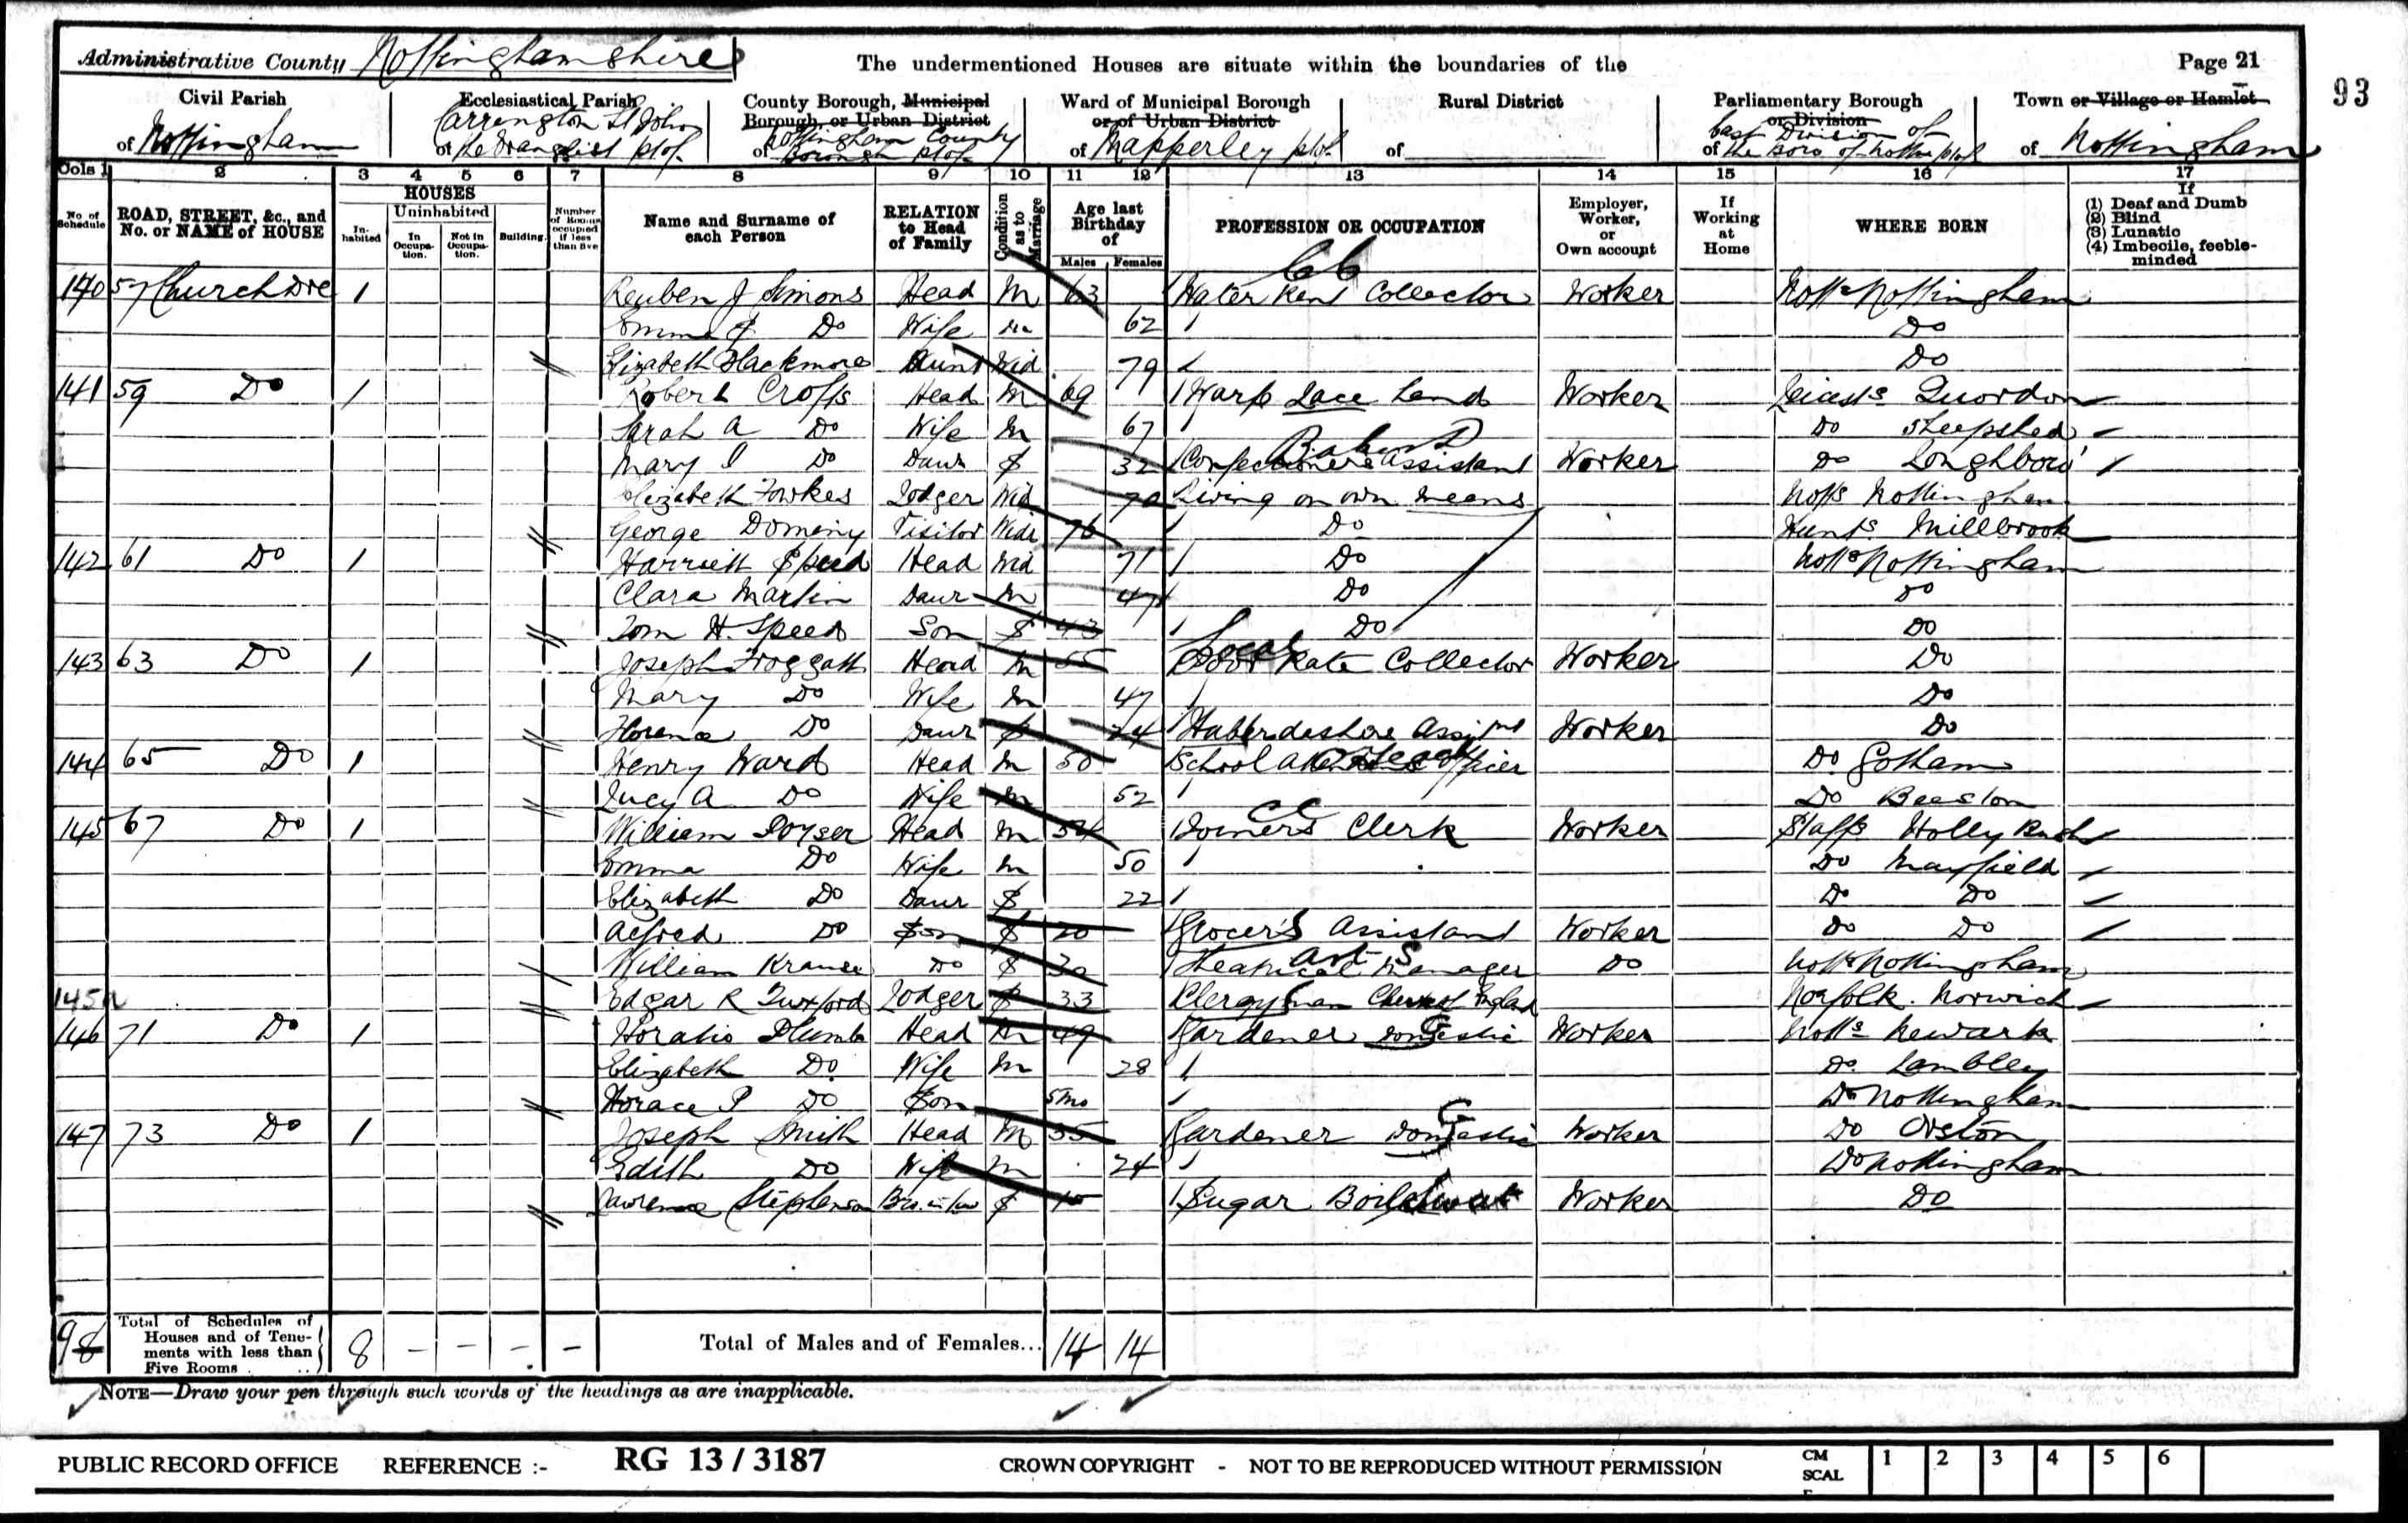 Administrative County Nottinghamshire The undermentioned Houses are situate within the boundaries of the Page 21
93
Civil Parish Ecclesiastical Parish County Borough, Municipal Borough, or Urban District Ward of Municipal Borough or of Urban District Rural District Parliamentary Borough or Division Town or Village or Hamlet
of Nottingham of Carrington St John the Evangelist pt of of Nottingham County Borough pt of of Mapperley pt of of of East Division of the Boro of Notts pt of of Nottingham
Cols 1 2 3 4 5 6 7 8 9 10 11 12 13 14 15 16 17
No of Schedule ROAD, STREET, &c., and No. or NAME of HOUSE HOUSES Inhabited Uninhabited In Occupation. Not in Occupation. Building. Number of Rooms occupied if less than five Name and Surname of each Person RELATION to Head of Family Condition as to Marriage Age last Birthday of Males Females PROFESSION OR OCCUPATION Employer, Worker, or Own account If Working at Home WHERE BORN If (1) Deaf and Dumb (2) Blind (3) Lunatic (4) Imbecile, feeble-minded
140 57 Church Dve 1 Reuben J Simons Head M 63 Water Rent Collector Worker Notts Nottingham
Emma Do Wife M 62 Do
Elizabeth Blackmore Aunt Wid 79 Do
141 59 Do 1 Robert Crofts Head M 69 Warp Lace Hand Worker Leicests Quordon
Sarah A Do Wife M 67 Do Sheepshed
Mary I Do Daur S 32 Confectioners Assistant Worker Do Longhboro'
Elizabeth Fowkes Lodger Wid 70 Living on own means Notts Nottingham
George Domeny Visitor Widr 76 Do Hunts Millbrook
142 61 Do 1 Harriett Speed Head Wid 71 Do Notts Nottingham
Clara Martin Daur M 47 Do Do
Tom H. Speed Son S 43 Do Do
143 63 Do 1 Joseph Froggatt Head M 55 Poor Rate Collector Worker Do
Mary Do Wife M 47 Do
Florence Do Daur S 24 Haberdashers Assist Worker Do
144 65 Do 1 Henry Ward Head M 50 School Attendance Officer Do Gotham
Lucy A Do Wife M 52 Do Beeston
145 67 Do 1 William Poyser Head M 54 Joiners Clerk Worker Staffs Holly Bush
Emma Do Wife M 50 Do Mayfield
Elizabeth Do Daur S 22 Do Do
Alfred Do Son S 20 Grocer's Assistant Worker Do Do
William Krause Do S 30 Theatrical Manager Do Notts Nottingham
145A Edgar R Tuxford Lodger S 33 Clergyman Church England Norfolk Norwich
146 71 Do 1 Horatio Plumb Head M 49 Gardener Domestic Worker Notts Newark
Elizabeth Do Wife M 28 Do Lambley
Horace P Do Son 5mo Do Nottingham
147 73 Do 1 Joseph Smith Head M 35 Gardener Domestic Worker Do Orston
Edith Do Wife M 24 Do Nottingham
Lawrence Stephenson Bro. in law S 15 Sugar Boiler Worker Do
98 Total of Schedules of Houses and of Tenements with less than Five Rooms 8 - - - - Total of Males and of Females... 14 14
NOTE—Draw your pen through such words of the headings as are inapplicable.
PUBLIC RECORD OFFICE REFERENCE :- RG 13 / 3187 CROWN COPYRIGHT - NOT TO BE REPRODUCED WITHOUT PERMISSION CM SCAL 1 2 3 4 5 6